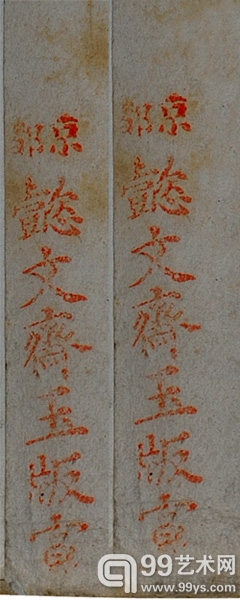 京都
懿文齋玉版宣
京都
懿文齋玉版宣
99艺术网
www.99ys.com